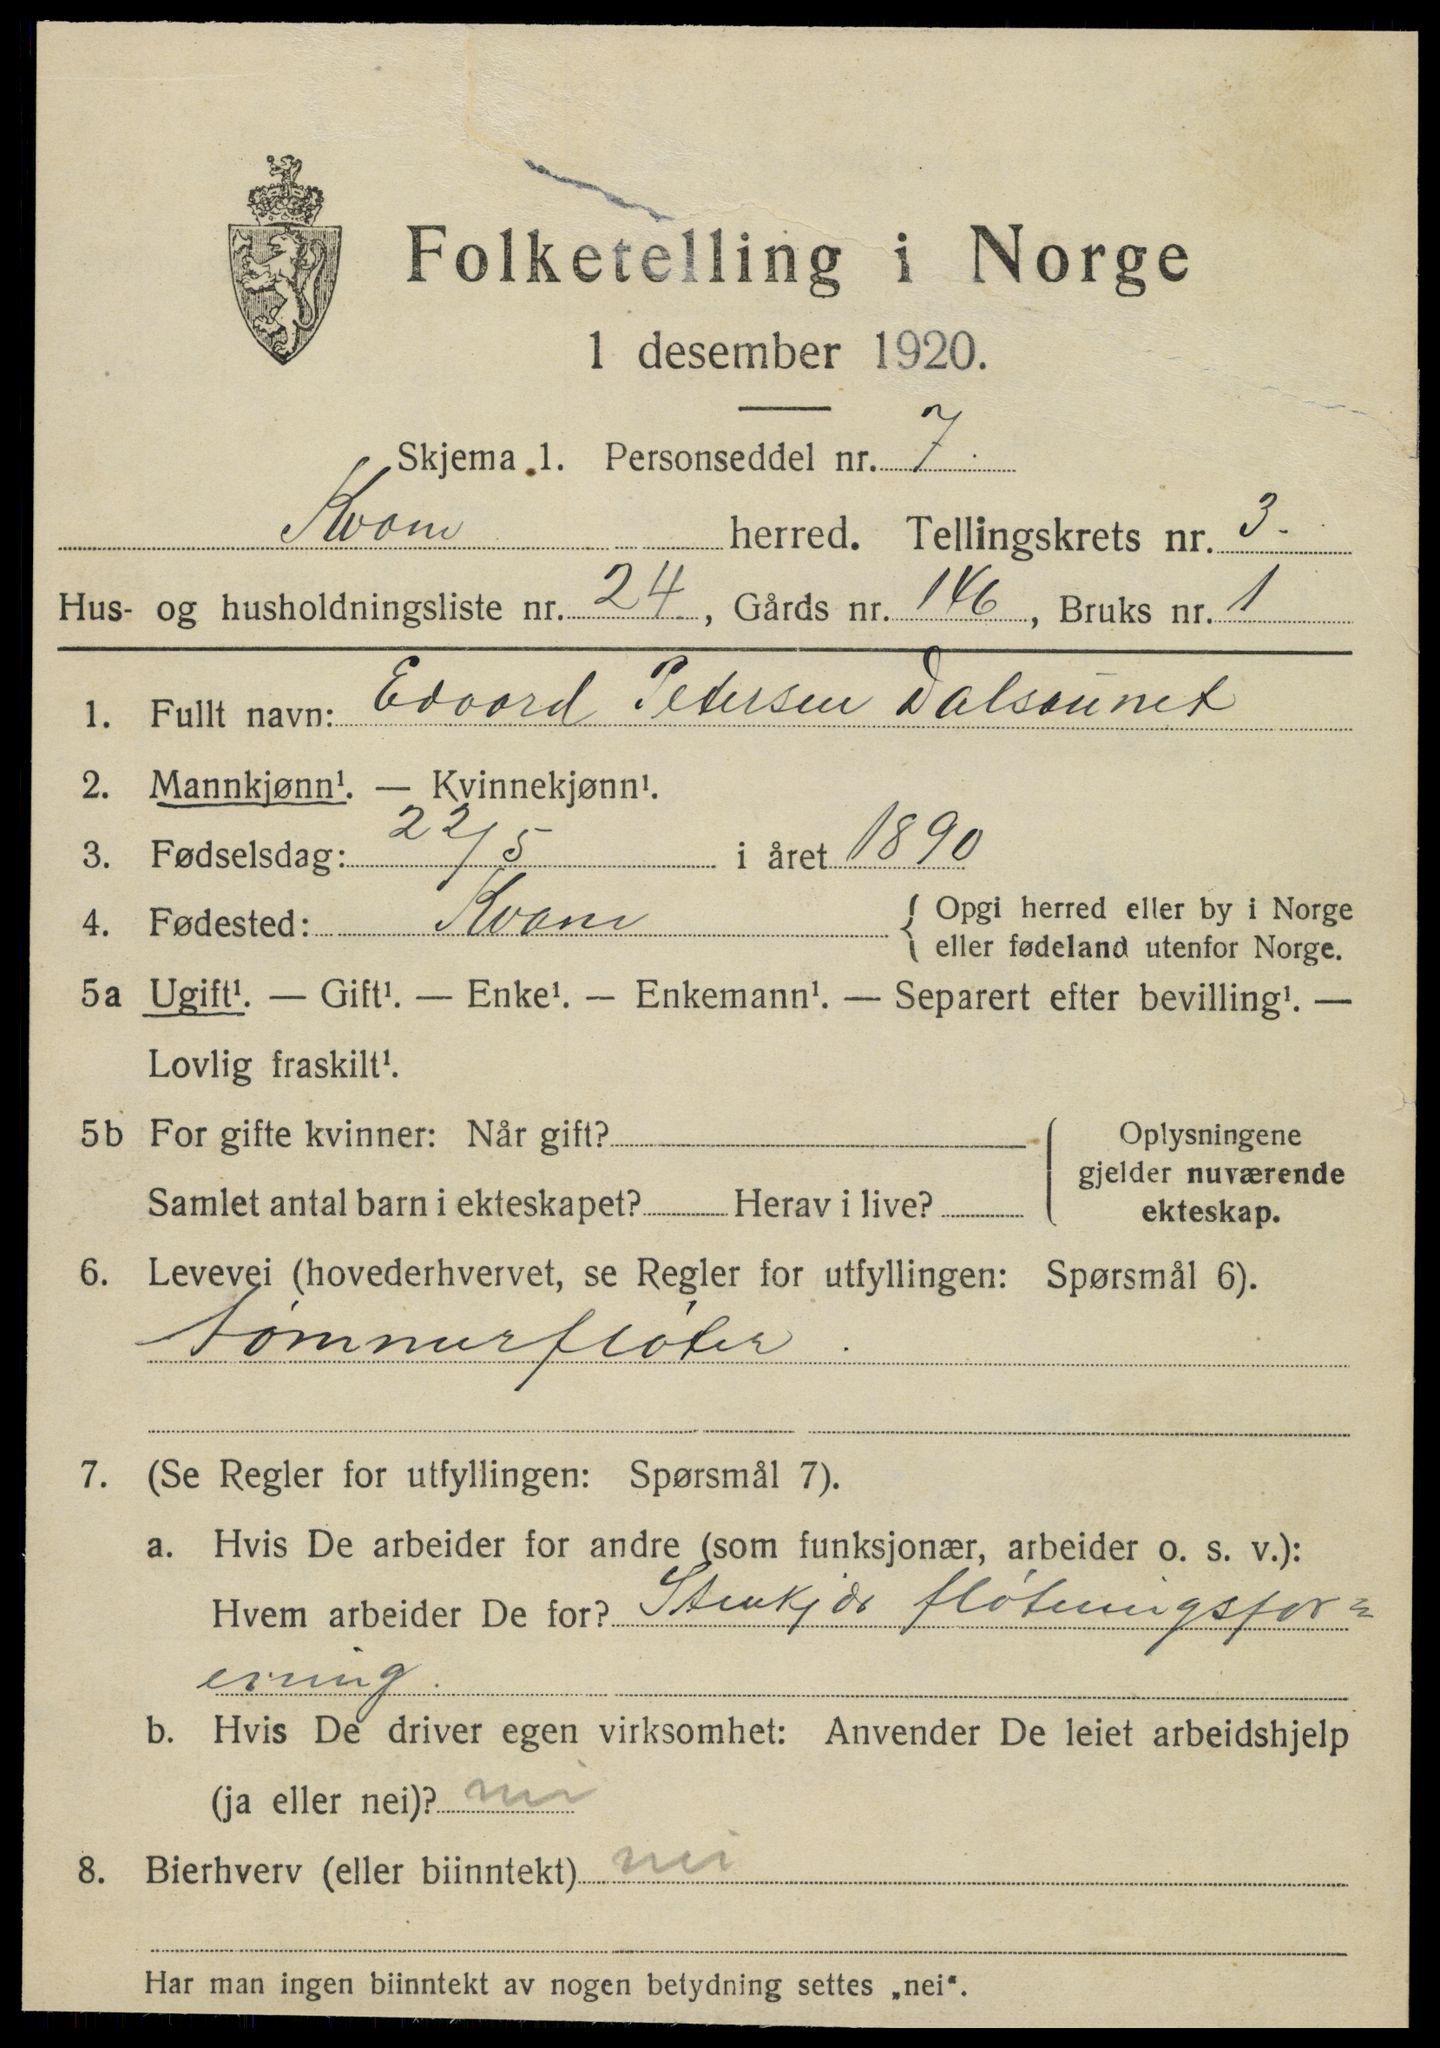 Folketelling i Norge
1 desember 1920.
Skjema 1. Personseddel nr. 7.
Kvam herred. Tellingskrets nr. 3.
Hus- og husholdningsliste nr. 24, Gårds nr. 146, Bruks nr. 1
1. Fullt navn: Edvard Petersen Dalsaunet
2. Mannkjønn¹. — Kvinnekjønn¹.
3. Fødselsdag: 22/5 i året 1890
4. Fødested: Kvam { Opgi herred eller by i Norge
eller fødeland utenfor Norge.
5a Ugift¹. — Gift¹. — Enke¹. — Enkemann¹. — Separert efter bevilling¹. —
Lovlig fraskilt¹.
5b For gifte kvinner: Når gift?
Samlet antal barn i ekteskapet? Herav i live?
Oplysningene
gjelder nuværende
ekteskap.
6. Levevei (hovederhvervet, se Regler for utfyllingen: Spørsmål 6).
Tømmerfløter.
7. (Se Regler for utfyllingen: Spørsmål 7).
a. Hvis De arbeider for andre (som funksjonær, arbeider o. s. v.):
Hvem arbeider De for? Stenkjær fløtningsfor=
ening.
b. Hvis De driver egen virksomhet: Anvender De leiet arbeidshjelp
(ja eller nei)? nei
8. Bierhverv (eller biinntekt) nei
Har man ingen biinntekt av nogen betydning settes „nei“.